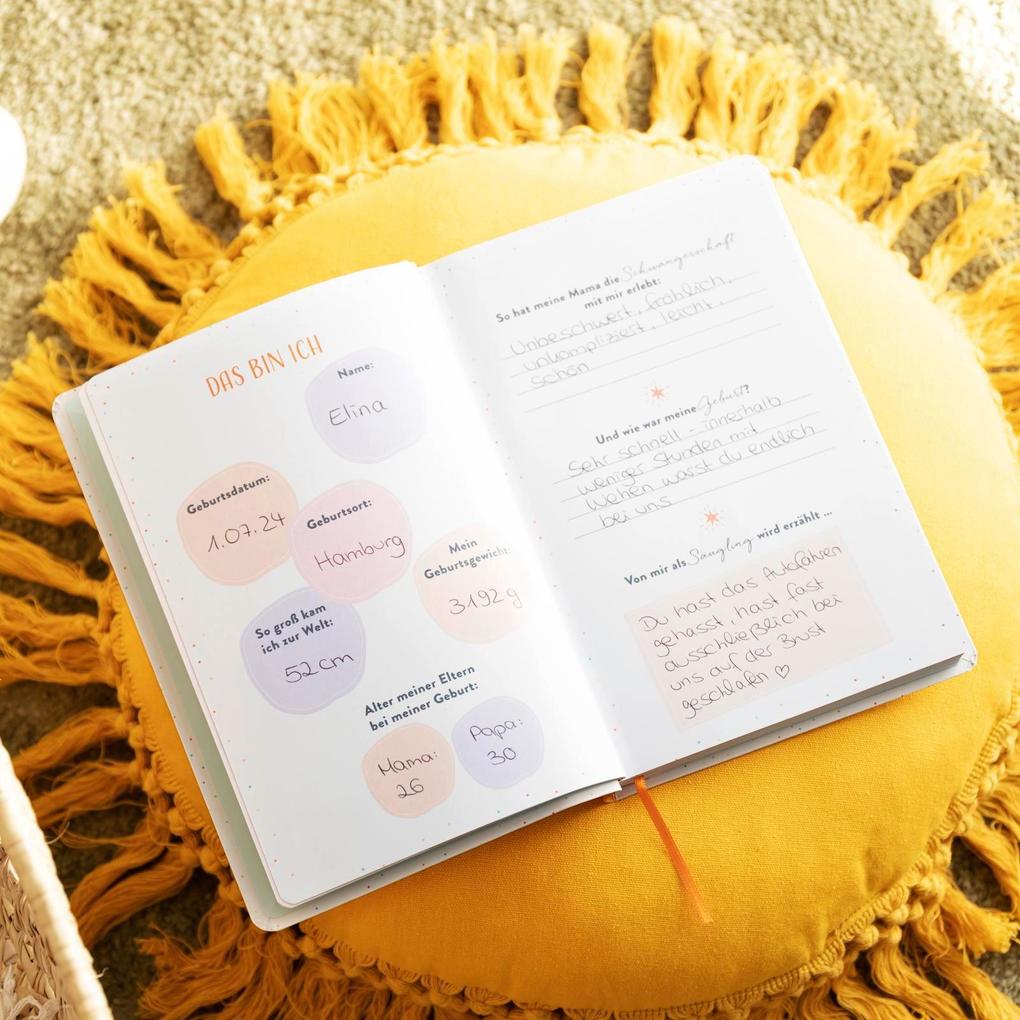 DAS BIN ICH
Name:
Elina
Geburtsdatum:
1.07.24
Geburtsort:
Hamburg
Mein
Geburtsgewicht:
3192 g
So groß kam
ich zur Welt:
52 cm
Alter meiner Eltern
bei meiner Geburt:
Mama:
26
Papa:
30
So hat meine Mama die Schwangerschaft
mit mir erlebt:
Unbeschwert, fröhlich,
unkompliziert, leicht,
schön
Und wie war meine Geburt?
Sehr schnell - innerhalb
weniger Stunden mit
Wehen warst du endlich
bei uns
Von mir als Säugling wird erzählt ...
Du hast das Autofahren
gehasst, hast fast
ausschließlich bei
uns auf der Brust
geschlafen ♡